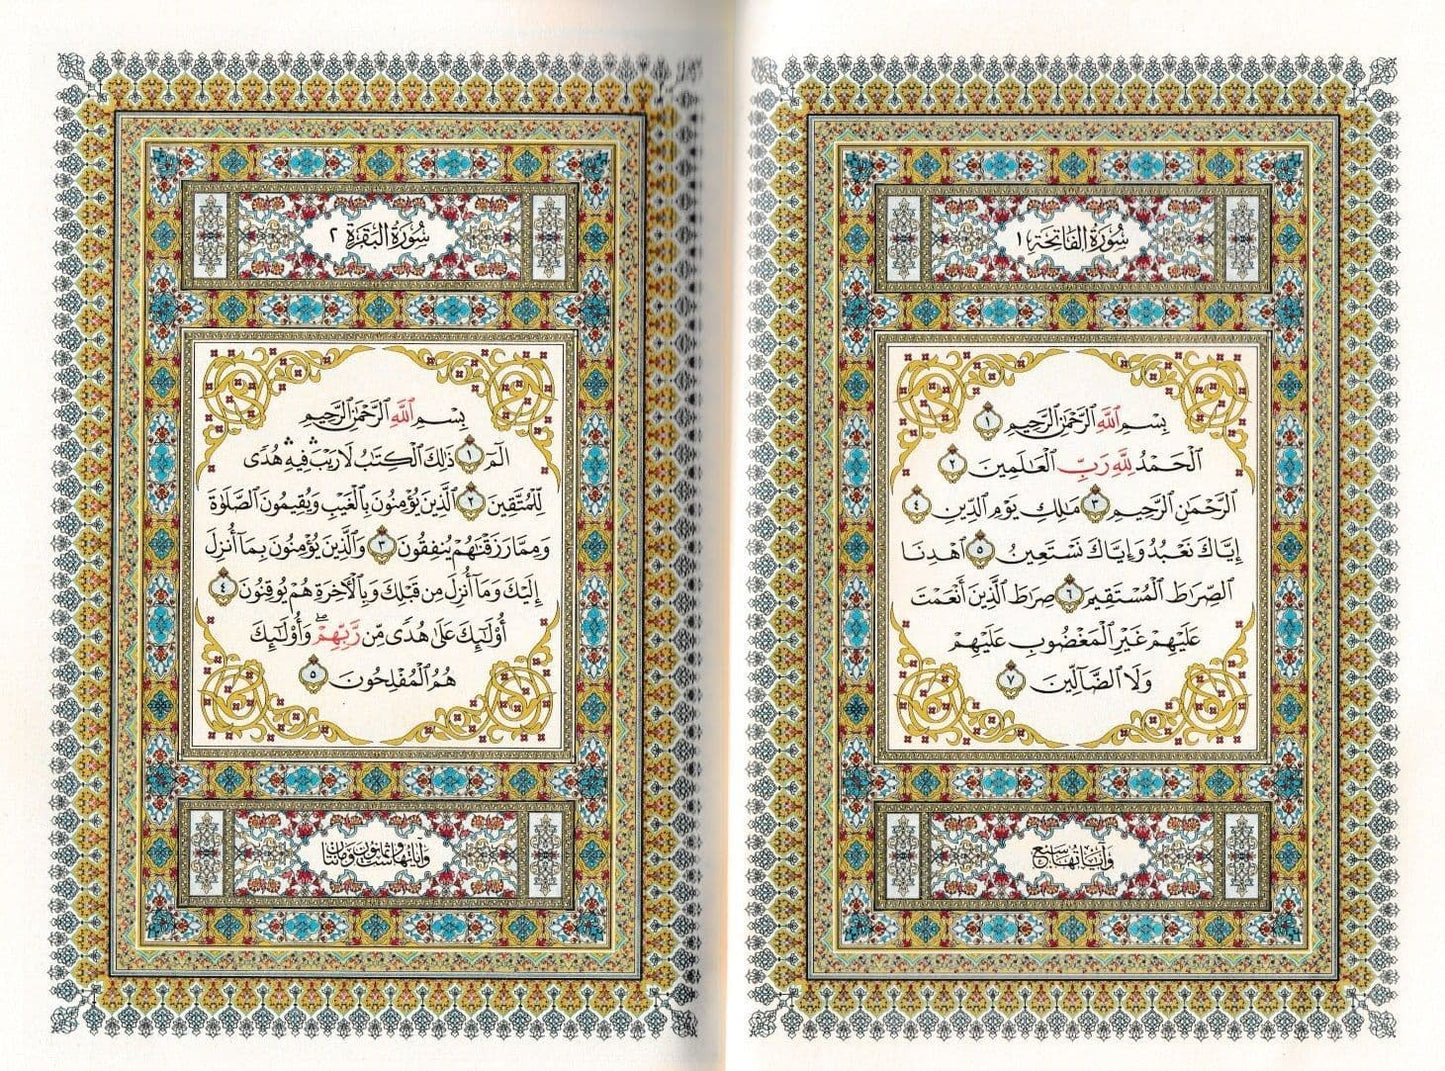 سُورَةُ الفَاتِحَةِ ١
بِسْمِ ٱللَّهِ ٱلرَّحْمَٰنِ ٱلرَّحِيمِ ١
ٱلْحَمْدُ لِلَّهِ رَبِّ ٱلْعَٰلَمِينَ ٢
ٱلرَّحْمَٰنِ ٱلرَّحِيمِ ٣ مَٰلِكِ يَوْمِ ٱلدِّينِ ٤
إِيَّاكَ نَعْبُدُ وَإِيَّاكَ نَسْتَعِينُ ٥ ٱهْدِنَا
ٱلصِّرَٰطَ ٱلْمُسْتَقِيمَ ٦ صِرَٰطَ ٱلَّذِينَ أَنْعَمْتَ
عَلَيْهِمْ غَيْرِ ٱلْمَغْضُوبِ عَلَيْهِمْ
وَلَا ٱلضَّآلِّينَ ٧
وَآيَاتُهَا سَبْعٌ
سُورَةُ البَقَرَةِ ٢
بِسْمِ ٱللَّهِ ٱلرَّحْمَٰنِ ٱلرَّحِيمِ
الٓمٓ ١ ذَٰلِكَ ٱلْكِتَٰبُ لَا رَيْبَ ۛ فِيهِ ۛ هُدًى
لِّلْمُتَّقِينَ ٢ ٱلَّذِينَ يُؤْمِنُونَ بِٱلْغَيْبِ وَيُقِيمُونَ ٱلصَّلَوٰةَ
وَمِمَّا رَزَقْنَٰهُمْ يُنفِقُونَ ٣ وَٱلَّذِينَ يُؤْمِنُونَ بِمَآ أُنزِلَ
إِلَيْكَ وَمَآ أُنزِلَ مِن قَبْلِكَ وَبِٱلْءَاخِرَةِ هُمْ يُوقِنُونَ ٤
أُو۟لَٰٓئِكَ عَلَىٰ هُدًى مِّن رَّبِّهِمْ ۖ وَأُو۟لَٰٓئِكَ
هُمُ ٱلْمُفْلِحُونَ ٥
وَآيَاتُهَا سِتٌّ وَثَمَانُونَ وَمِائَتَانِ